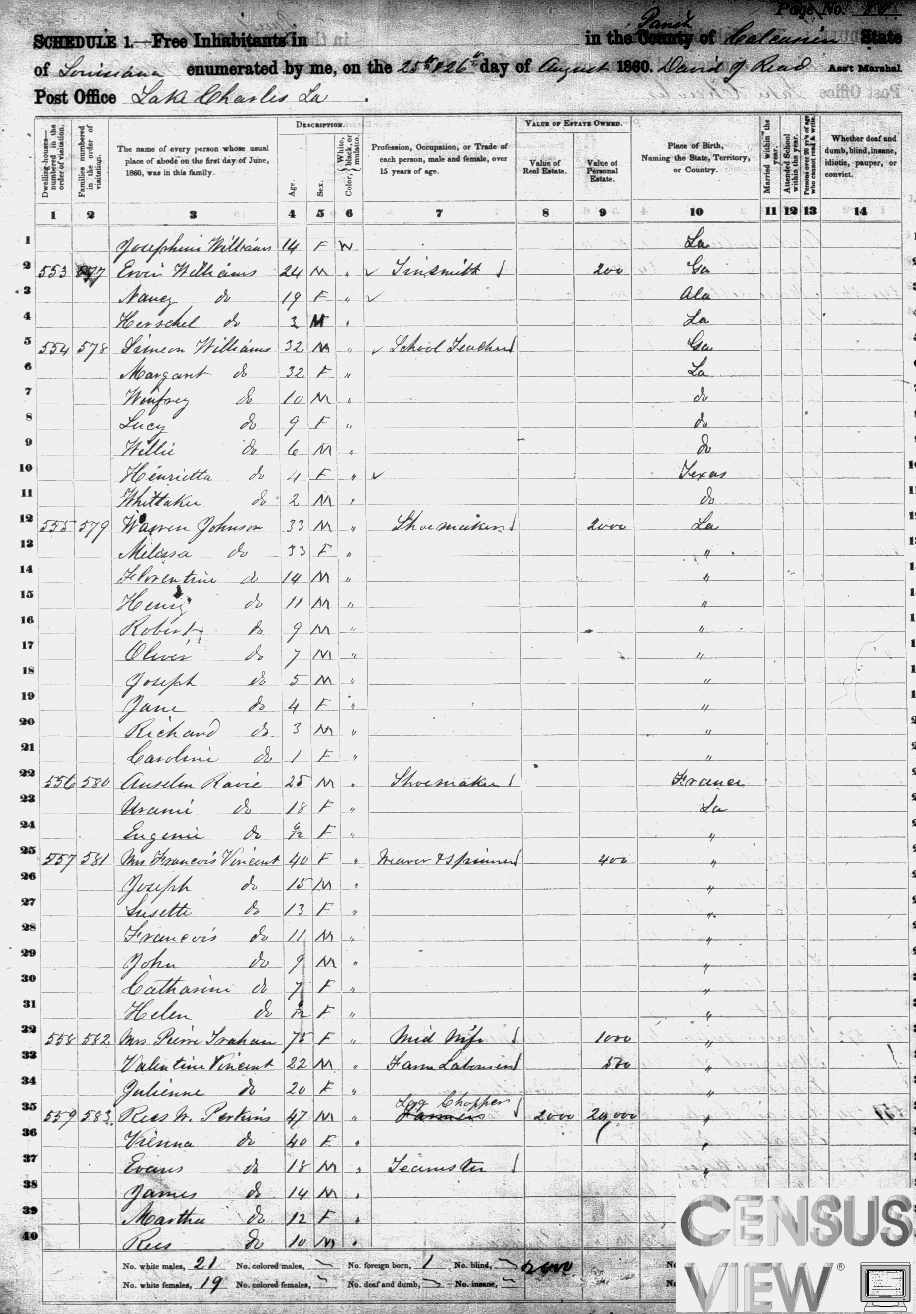 Page No.
SCHEDULE 1.—Free Inhabitants in in the County of Parish Calcasieu State
of Louisiana enumerated by me, on the 25th & 26th day of August 1860. David J Read Ass't Marshal.
Post Office Lake Charles La.
Dwelling-houses—numbered in the order of visitation. Families numbered in the order of visitation. The name of every person whose usual place of abode on the first day of June, 1860, was in this family. DESCRIPTION. Age. Sex. Color, White, black, or mulatto. Profession, Occupation, or Trade of each person, male and female, over 15 years of age. VALUE OF ESTATE OWNED. Value of Real Estate. Value of Personal Estate. Place of Birth, Naming the State, Territory, or Country. Married within the year. Attended School within the year. Persons over 20 y'rs of age who cannot read & write. Whether deaf and dumb, blind, insane, idiotic, pauper, or convict.
1 2 3 4 5 6 7 8 9 10 11 12 13 14
1 Josephine Williams 14 F W La
2 553 577 Ervin Williams 24 M " Tinsmith 200 Ga
3 Nancy do 19 F " Ala
4 Herschel do 3 M " La
5 554 578 Simeon Williams 32 M " School Teacher Ga
6 Margaret do 32 F " La
7 Winfrey do 10 M " do
8 Lucy do 9 F " do
9 Willie do 6 M " do
10 Henrietta do 4 F " Texas
11 Whittaker do 2 M " do
12 555 579 Warren Johnson 33 M " Shoemaker 2000 La
13 Melissa do 33 F " "
14 Florentine do 14 M " "
15 Henry do 11 M " "
16 Robert do 9 M " "
17 Oliver do 7 M " "
18 Joseph do 5 M " "
19 Jane do 4 F " "
20 Richard do 3 M " "
21 Caroline do 1 F " "
22 556 580 Anselm Ravie 25 M " Shoemaker France
23 Uranie do 18 F " La
24 Eugenie do F " "
25 557 581 Mrs Francois Vincent 40 F " Weaver & Spinner 400 "
26 Joseph do 15 M " "
27 Susette do 13 F " "
28 Francois do 11 M " "
29 John do 9 M " "
30 Catharine do 7 F " "
31 Helen do F " "
32 558 582 Mrs Pierre Graham 75 F " Mid Wife 1000 "
33 Valentine Vincent 22 M " Farm Labourer 500 "
34 Julienne do 20 F " "
35 559 583 Rees W. Perkins 47 M " Farmers Log Chopper 2000 20,000 "
36 Vienna do 40 F " "
37 Evans do 18 M " Teamster "
38 James do 14 M "
39 Martha do 12 F "
40 Rees do 10 M "
No. white males, 21 No. colored males, No. foreign born, 1 No. blind, 2000 No.
No. white females, 19 No. colored females, No. deaf and dumb, No. insane, No.
CENSUS
VIEW®